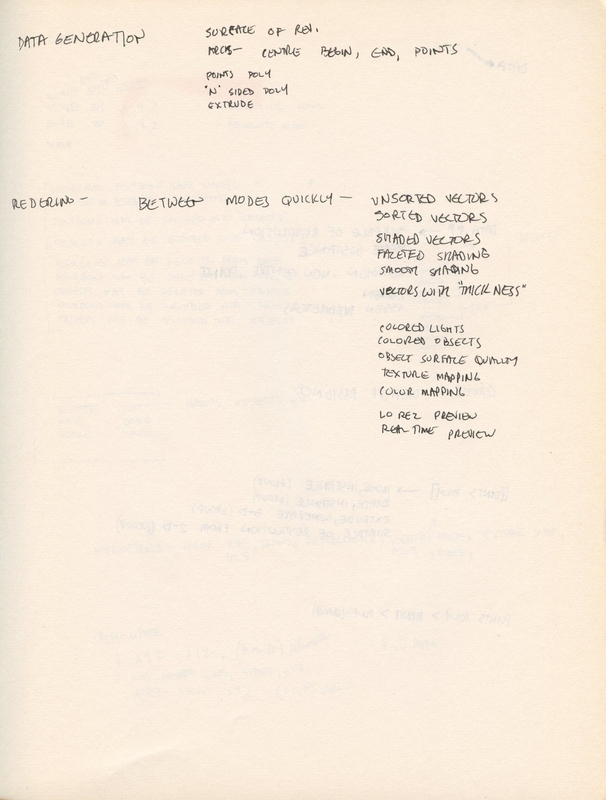 DATA GENERATION
SURFACE OF REV.
ARCS— CENTRE BEGIN, END, POINTS
POINTS POLY
'N' SIDED POLY
EXTRUDE
REDERING — BETWEEN MODES QUICKLY — UNSORTED VECTORS
SORTED VECTORS
SHADED VECTORS
FACETED SHADING
SMOOTH SHADING
VECTORS WITH "THICKNESS"
COLORED LIGHTS
COLORED OBJECTS
OBJECT SURFACE QUALITY
TEXTURE MAPPING
COLOR MAPPING
LO REZ PREVIEW
REAL TIME PREVIEW